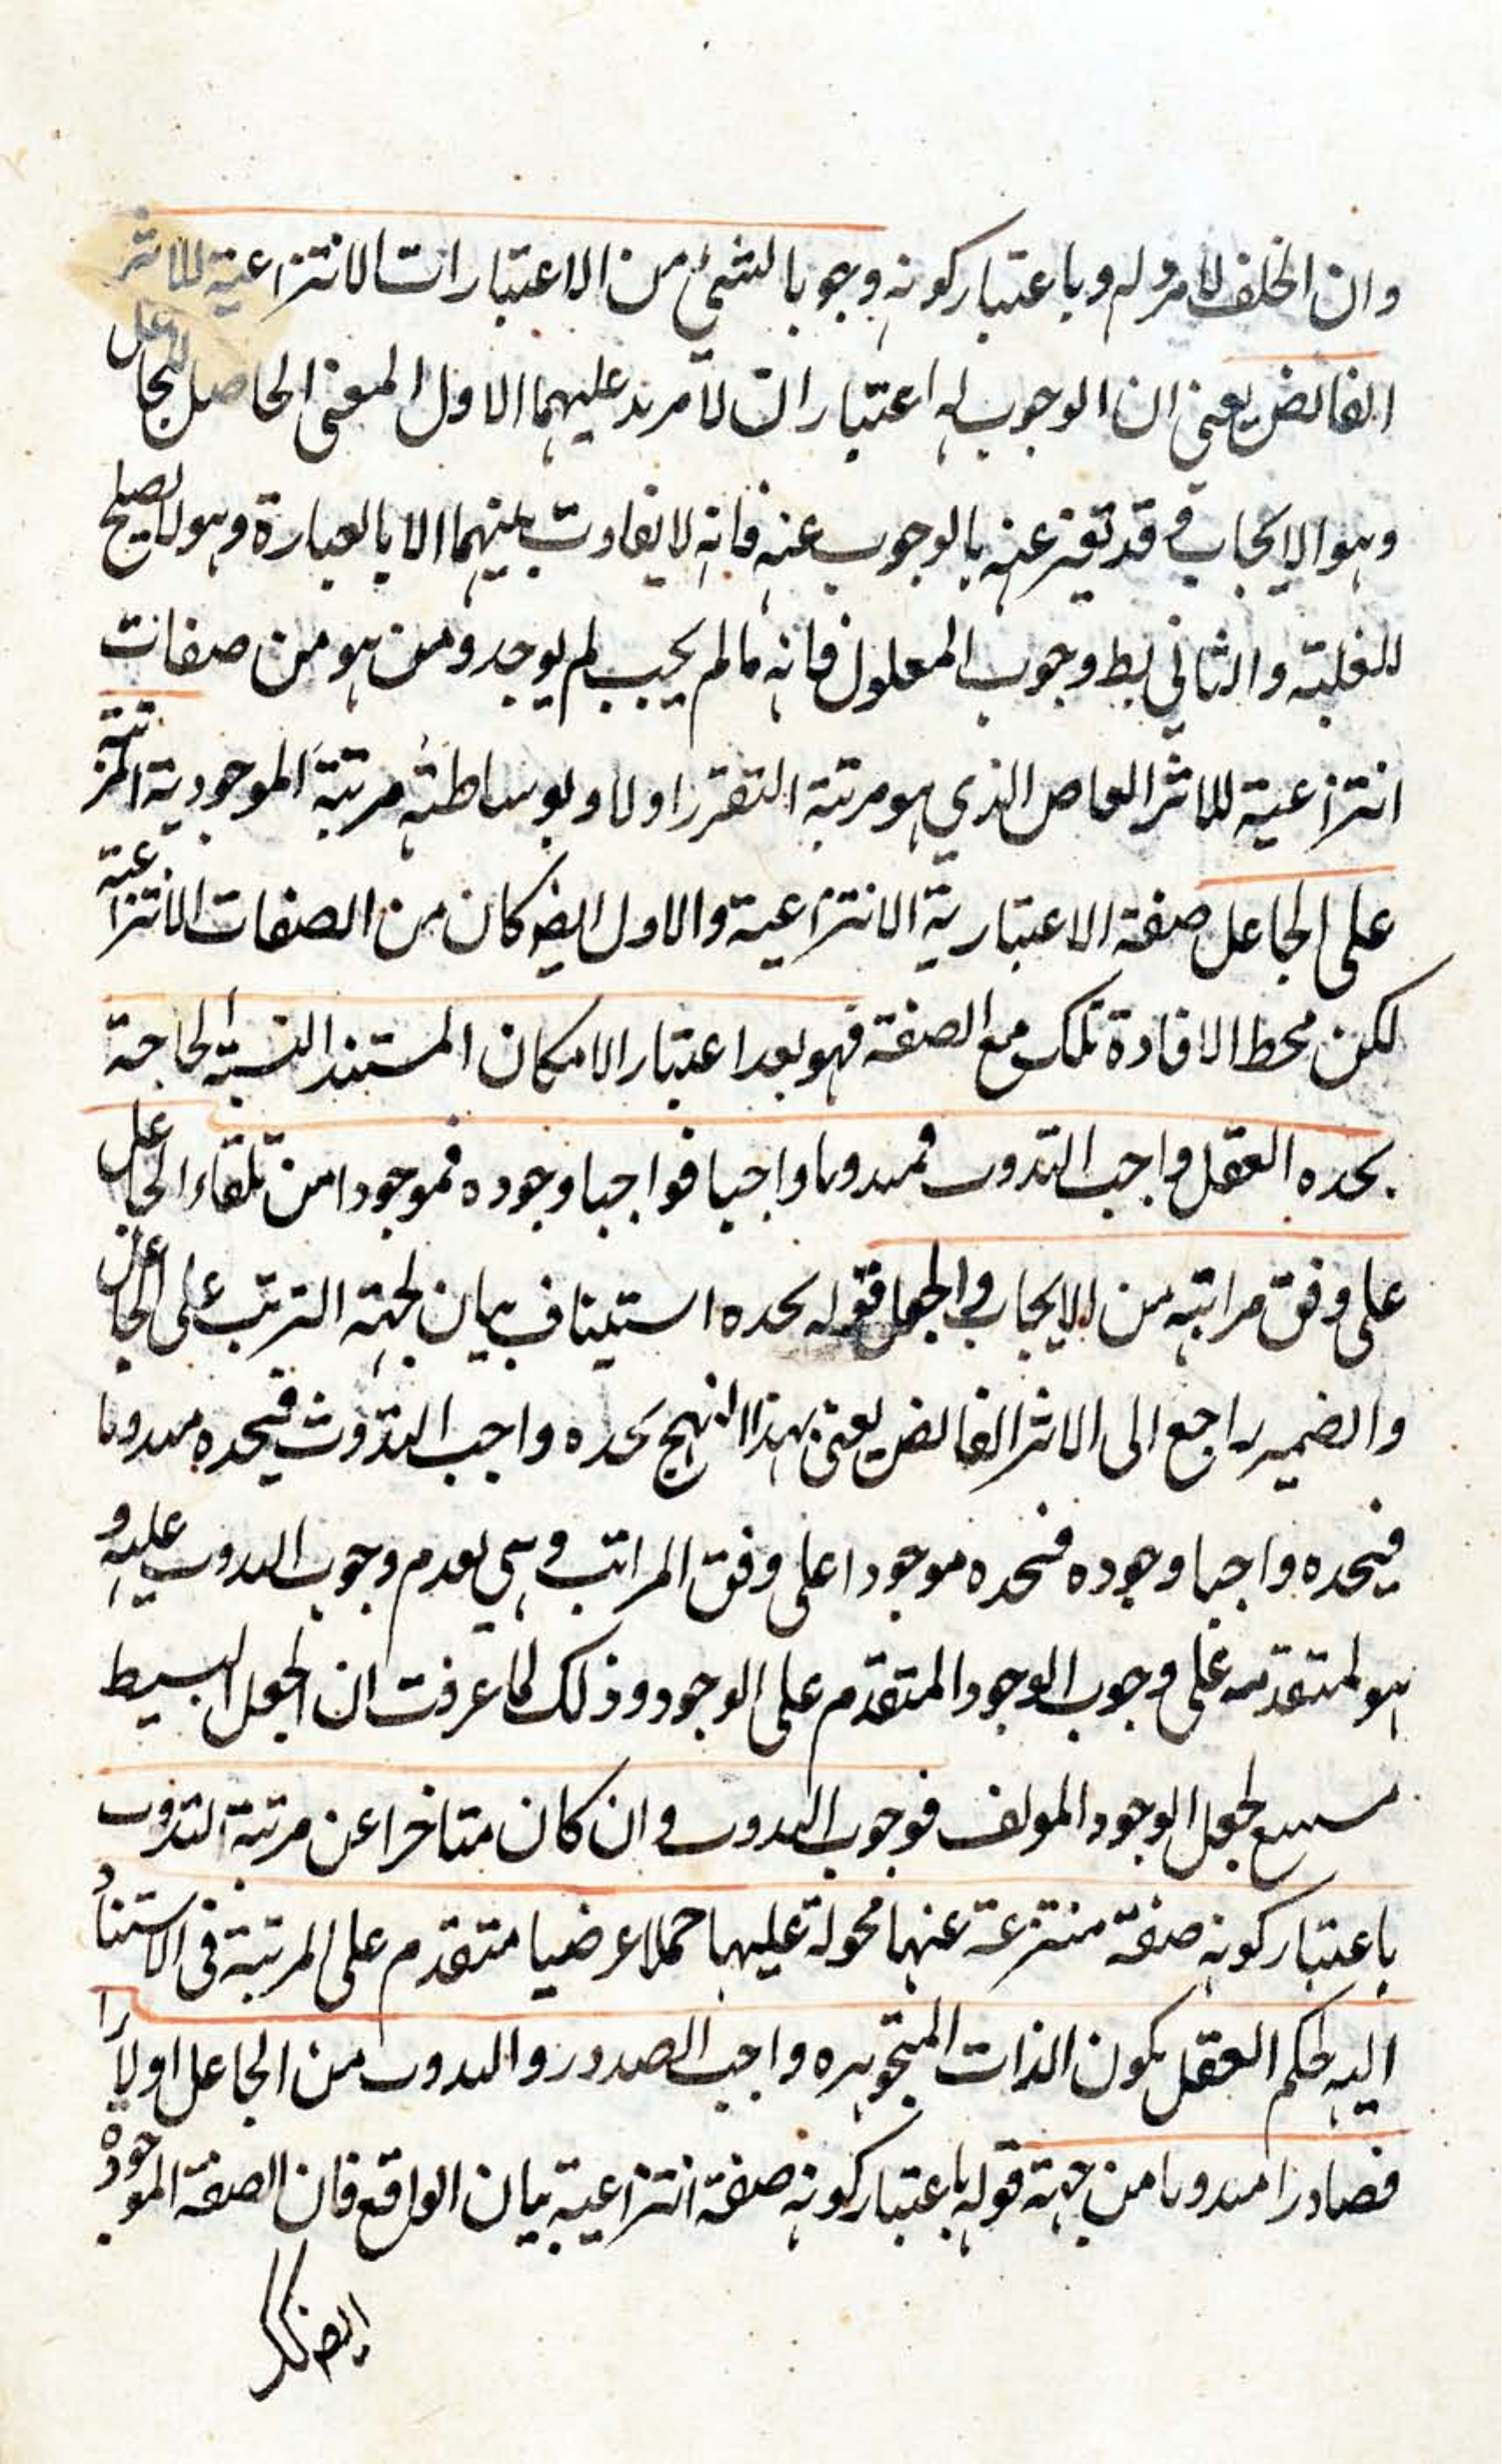 وان الخلف لامر وله وباعتبار كونه وجوبا لشئ من الاعتبارات الانتزاعية للاثر
الفائض يعنى ان الوجوب له اعتباران لا مزيد عليهما الاول المعنى الحاصل للجاعل
وهو الايجاب وقد عنه بالوجوب عنه فانه لا يفاوت بينهما الا بالعبارة وهو لا يصلح
للغلبة والثانى وجوب المعلول فانه ما لم يجب لم يوجد ومن هو من صفات
انتزاعية للاثر الذي هو مرتبة التقرر اولا وبوساطته مرتبة الموجودية المرتبة
على الجاعل صفة الاعتبارية الانتزاعية والاول ايض كان من الصفات الانتزاعية
لكن محط الافادة تلك مع الصفة فهو بعد اعتبار الامكان المستند اليه الحاجة
يحده العقل واجب التذوت فمذوتا واجبا فواجبا وجوده فموجودا من تلقاء الجاعل
على وفق مراتبه من الايجاب والجعل قوله يحده استيناف بيان لجهة الترتب على الجاعل
والضمير راجع الى الاثر الفائض يعنى بهذا النهج يحده واجب التذوت فيحده مذوتا
فيحده واجبا وجوده فيحده موجودا على وفق المراتب وهى تقدم وجوب التذوت عليه و
هو المتقدمه على وجوب الوجود المتقدم على الوجود وذلك لما عرفت ان الجعل البسيط
لجعل الوجود المولف فوجوب التذوت وان كان متاخرا عن مرتبة التذوت
باعتبار كونه صفة منتزعة عنها محمولة عليها حملا عرضيا متقدم على المرتبة فى الاستناد
اليه لحكم العقل بكون الذات المتجوهره واجب الصدور والتذوت من الجاعل اولا
فصادرا مذوتا من جهة قوله باعتبار كونه صفة انتزاعية بيان الواقع فان الصفة الموجوده